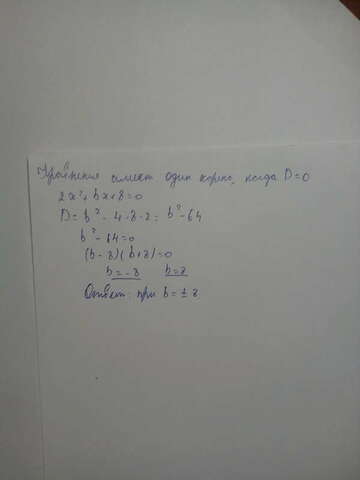 Уравнения имеет один корень, когда D=0
2x²+bx+8=0
D=b²-4·8·2=b²-64
b²-64=0
(b-8)(b+8)=0
b=-8 b=8
Ответ: при b=±8